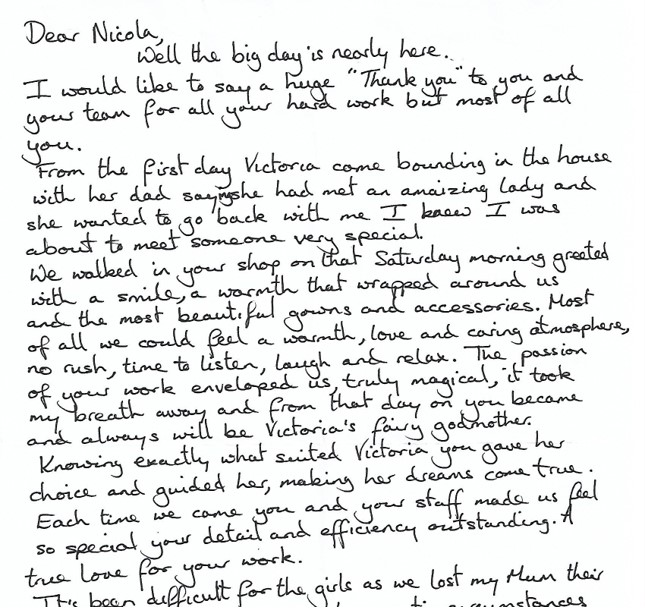 Dear Nicola,
Well the big day is nearly here.
I would like to say a huge "Thank you" to you and
your team for all your hard work but most of all
you.
From the first day Victoria came bounding in the house
with her dad saying she had met an amaizing lady and
she wanted to go back with me I knew I was
about to meet someone very special.
We walked in your shop on that Saturday morning greeted
with a smile, a warmth that wrapped around us
and the most beautiful gowns and accessories. Most
of all we could feel a warmth, love and caring atmosphere,
no rush, time to listen, laugh and relax. The passion
of your work enveloped us, truly magical, it took
my breath away and from that day on you became
and always will be Victoria's fairy godmother.
Knowing exactly what suited Victoria you gave her
choice and guided her, making her dreams come true.
Each time we came you and your staff made us feel
so special your detail and efficiency outstanding. A
true love for your work.
It's been difficult for the girls as we lost my Mum their
circumstances